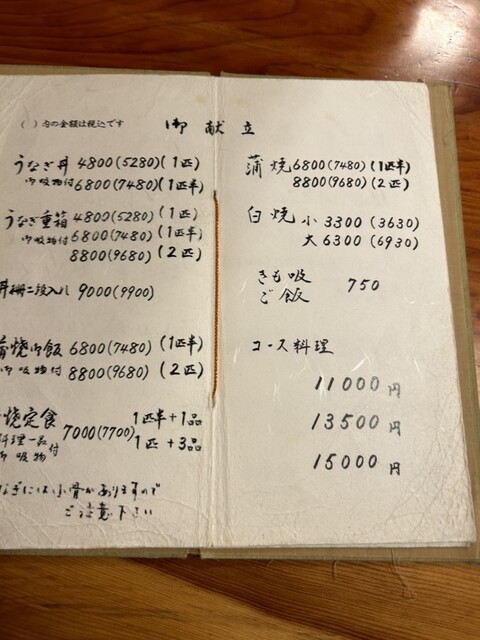 ( )内の金額は税込です
御献立
うなぎ丼 4800(5280)(1匹)
御吸物付 6800(7480)(1匹半)
うなぎ重箱 4800(5280)(1匹)
御吸物付 6800(7480)(1匹半)
8800(9680)(2匹)
丼柵二段入れ 9000(9900)
蒲焼御飯 6800(7480)(1匹半)
御吸物付 8800(9680)(2匹)
焼定食 7000(7700) 1匹半+1品
料理一品 御吸物 付 1匹+3品
なぎには小骨がありますので
ご注意下さい
蒲焼 6800(7480)(1匹半)
8800(9680)(2匹)
白焼 小 3300(3630)
大 6300(6930)
きも吸 750
ご飯
コース料理
11000円
13500円
15000円